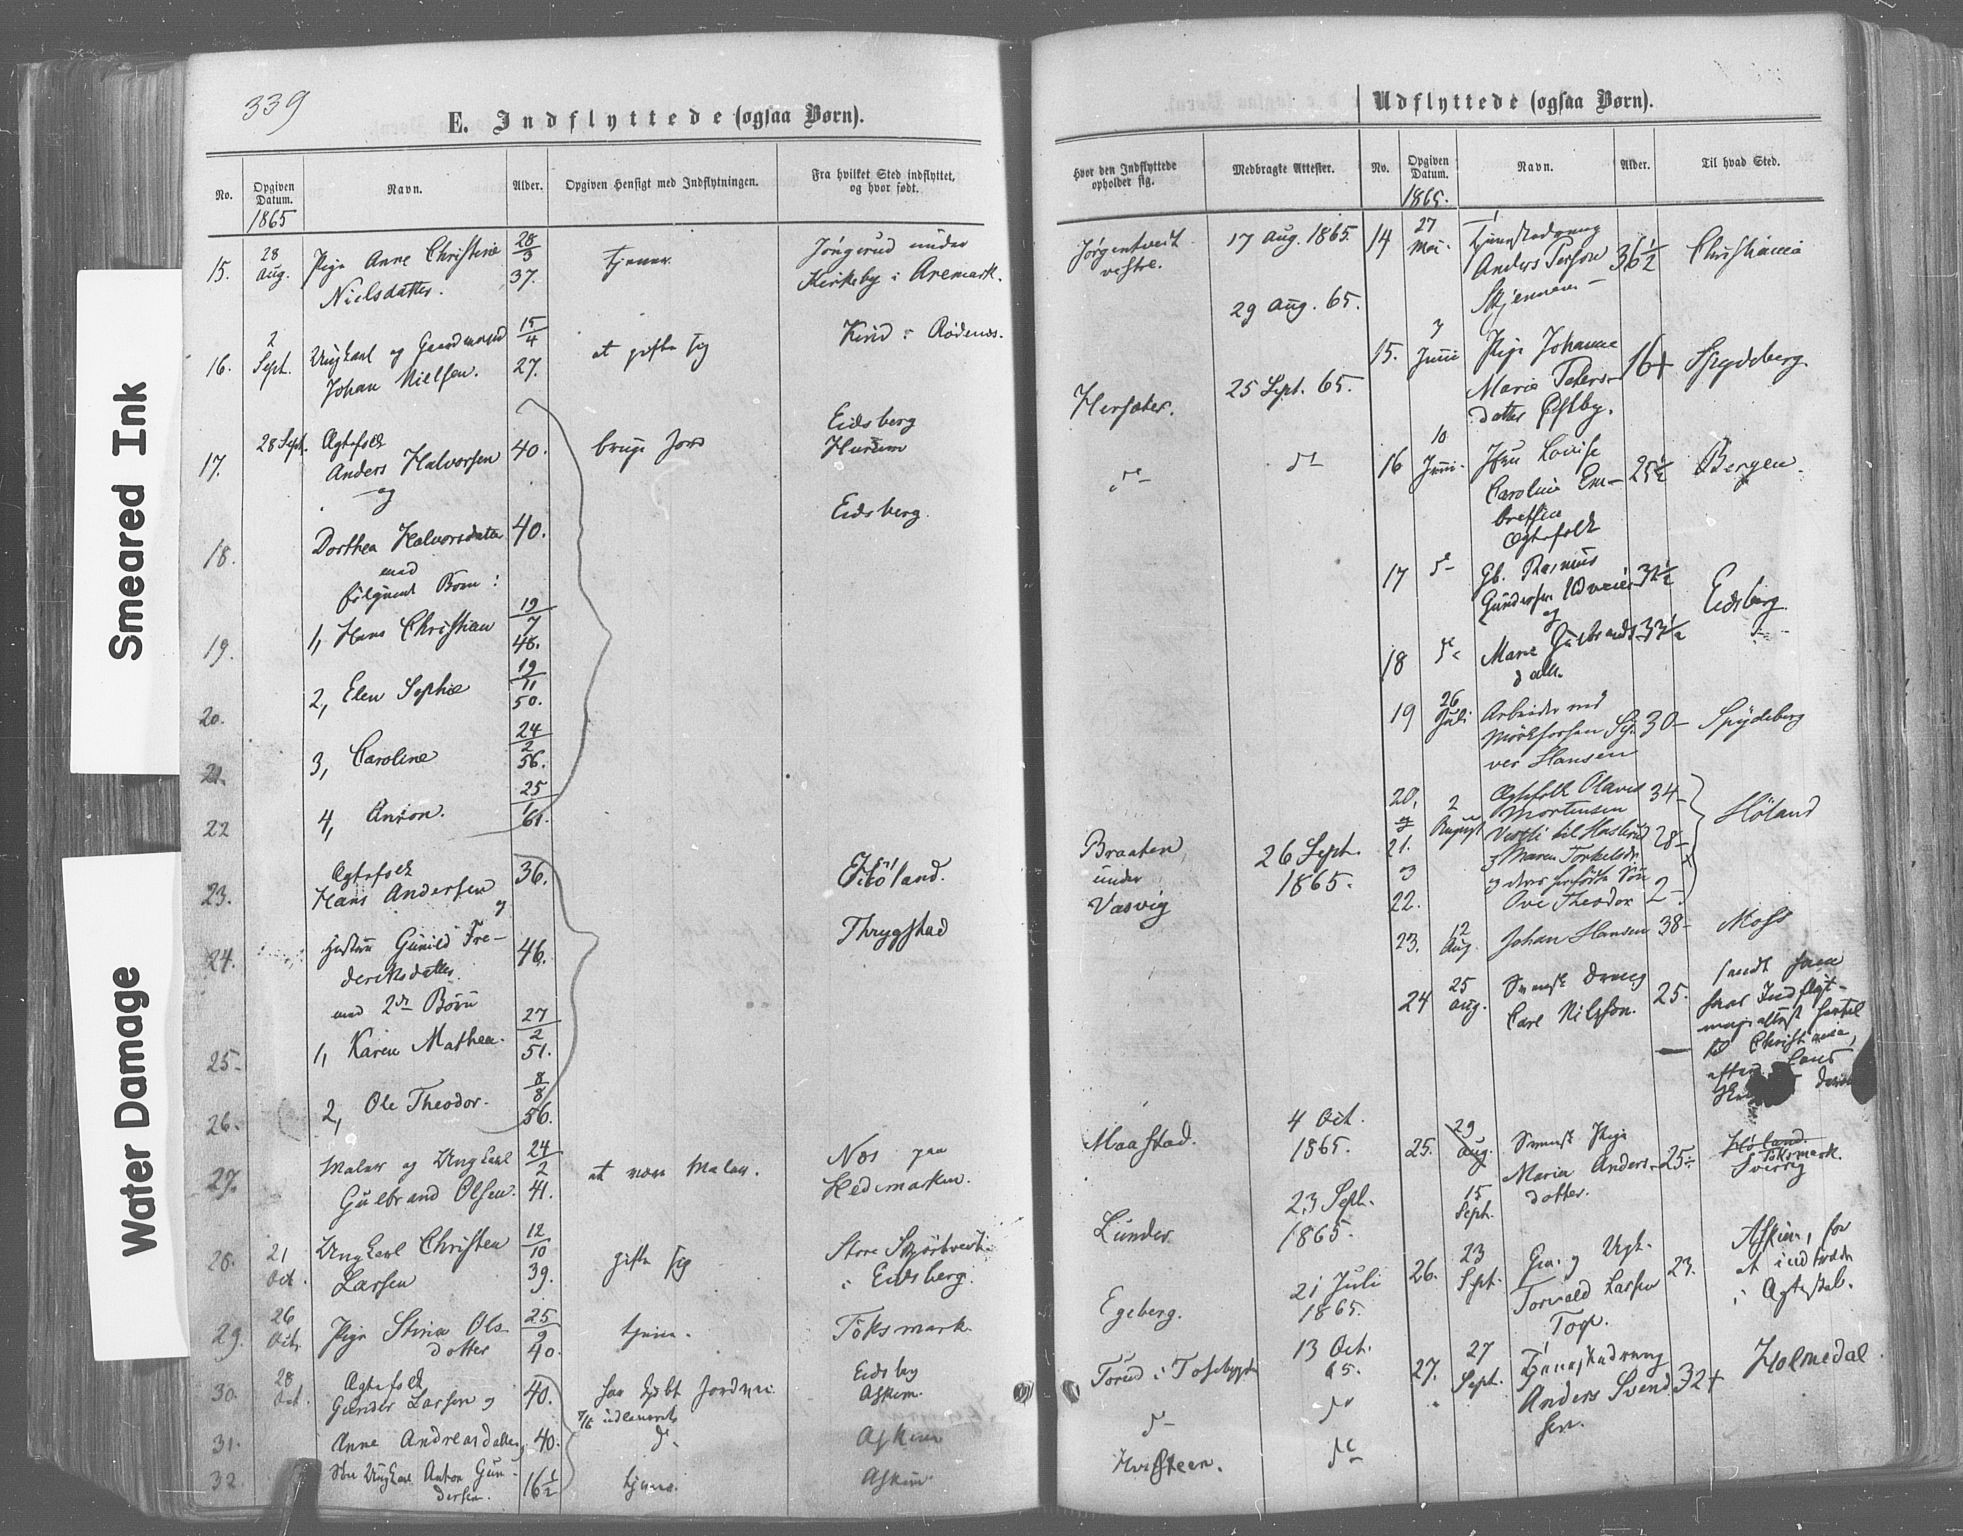 339
E. Indflyttede (ogsaa Børn).
No.
Opgiven Datum.
Navn.
Alder.
Opgiven Hensigt med Indflytningen.
Fra hvilket Sted indflyttet, og hvor født.
1865
15. 28 Aug. Pige Anne Christine 28/3 37. tjener Jöngerud under
Nielsdatter. Kirkeby i Aremark.
16. 2 Sept. Ungkarl og Gaardmand 15/4 27. at gifte sig Kind i Rödenes.
Johan Nielsen.
17. 28 Sept. Ægtefolk Eidsberg
Anders Halvorsen 40. bruge Jord Hurum
og
18. Dorthea Halvorsdatter 40. Eidsberg.
med
følgende Børn:
19. 1, Hans Christian 19/7 48.
20. 2, Elen Sophie 19/11 50.
21. 3, Caroline 24/2 56.
22 4, Anton. 25/1 61.
Ægtefolk
23. Hans Andersen 36. Höland.
og
24. Hustru Gunild Fre- 46. Thrygstad
deriksdatter
med 2de Börn
25. 1, Karen Mathea. 27/2 51.
26. 2, Ole Theodor. 8/8 56.
27. Maler og Ungkarl 24/2 41. at være Maler. Nes paa
Gulbrand Olsen. Hedemarken.
28. 21 Oct. Ungkarl Christen 12/10 39. gifte sig Store
Larsen i Eidsberg.
29. 26 Octr Pige Stina Ols- 25/9 40. tjene. Töksmark.
datter
30. 28 Oct. Ægtefolk Eidsberg
Gunder Larsen og 40. har kjöbt Jord Askim.
udleveret
31. Anne Andreasdatter 40. do Askim
32. Søn Ungkarl Anton Gun- 16½ tjene. Askim
dersen.
Udflyttede (ogsaa Børn).
Hvor den Indflyttede opholder sig.
Medbragte Attester.
No.
Opgiven Datum.
Navn.
Alder.
Til hvad Sted.
1865.
Jørgentvedt 17 Aug. 1865.
vestre.
29 Aug. 65.
Hersæter. 25 Sept. 65.
do do
Braaten 26 Sept.
under 1865.
Vasvig
Maastad. 4 Oct.
1865.
Lunder 23 Sept.
1865.
Egeberg. 21 Juli
1865.
Torud i 13 Oct.
65.
do do
Hvidsteen. do
14 27 Mai Tjenestedreng
Anders 36½ Christiania
15. 3 Juni Pige Johanne 16+ Spydeberg
Marie Peters-
datter Østby.
16 10 Juni. Lovise 25½ Bergen.
Caroline Em-
bretsen
Ægtefolk
17 do Gb. Rasmus
Gundersen 32½ Eidsberg
og
18 do Marie Gulbrands- 33½
datt.
19 26 Juli Arbeider ved
Mörkfossen 30- Spydeberg
Hansen
20, 2 August Ægtefolk Olaves 34-
og Mortensen Höland
21. 28-
og Maren Torkelsdr.
og deres Søn
22. Ove Theodor 2-
23. 12 Aug. Johan Hansen 38- Moss
24 25 Aug. Svensk Dreng
Carl Nilsson. 25. til Christiania,
25. 29 Aug. Svensk Pige Höland.
Maria Anders- 25- Töksmark.
15 Sept. dotter. Sverrig
26. 23 Sept. 23. Askim, for
Torvald Larsen at indtræde
Torp. i Ægtestab.
27. 27 Sept. Tjenestedreng
Anders Svend- 32+ Holmedal.
sen.
Smeared Ink
Water Damage